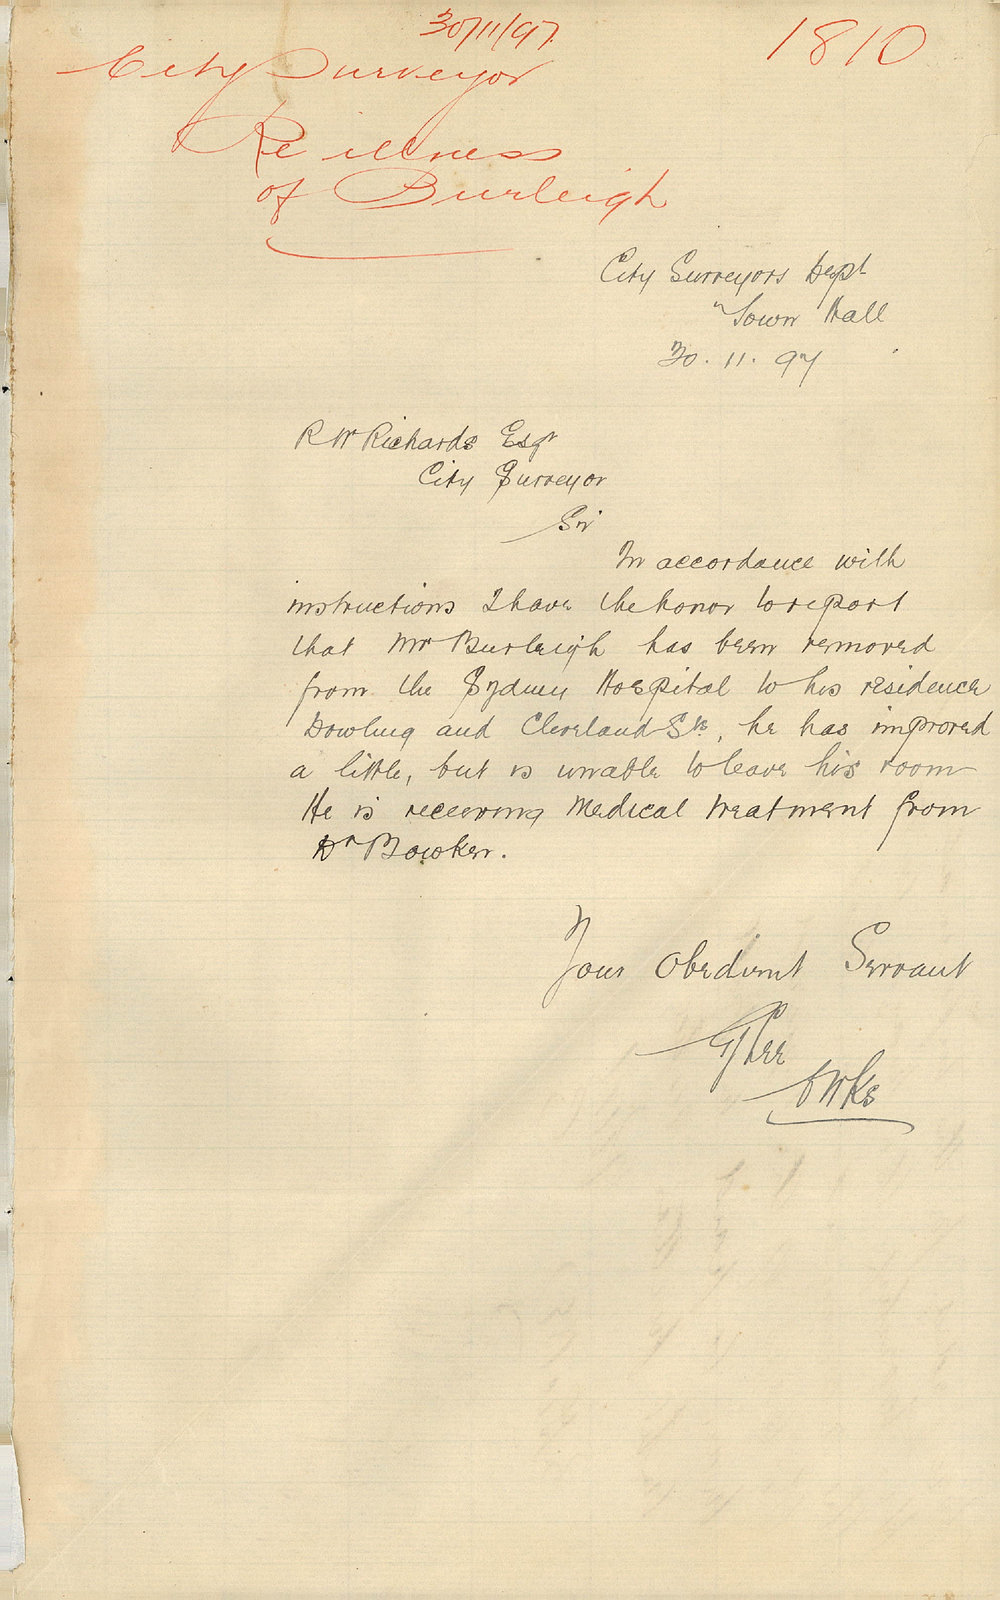 30/11/97
1810
City Surveyor
Re illness
of Burleigh
City Surveyors Dept
Town Hall
30.11.97
R W Richards Esqr
City Surveyor
Sir
In accordance with
instructions I have the honor to report
that Mr Burleigh has been removed
from the Sydney Hospital to his residence
Dowling and Cleveland Sts, he has improved
a little, but is unable to leave his room
He is receiving Medical treatment from
Dr Bowker.
Your Obedient Servant